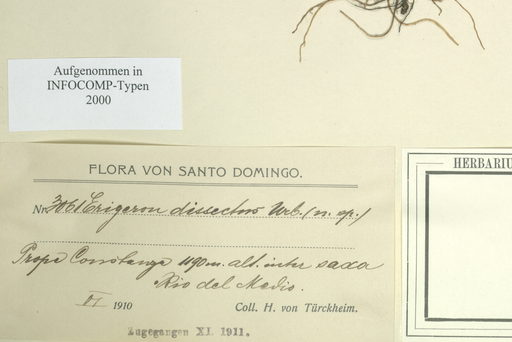 Aufgenommen in
INFOCOMP-Typen
2000
FLORA VON SANTO DOMINGO.
HERBARIU
Nr. 3061 Erigeron dissectus Urb. (n. sp.)
Prope Constanza 1190 m. alt. inter saxa
Rio del Medio.
VI 1910 Coll. H. von Türckheim.
Zugegangen XI. 1911.